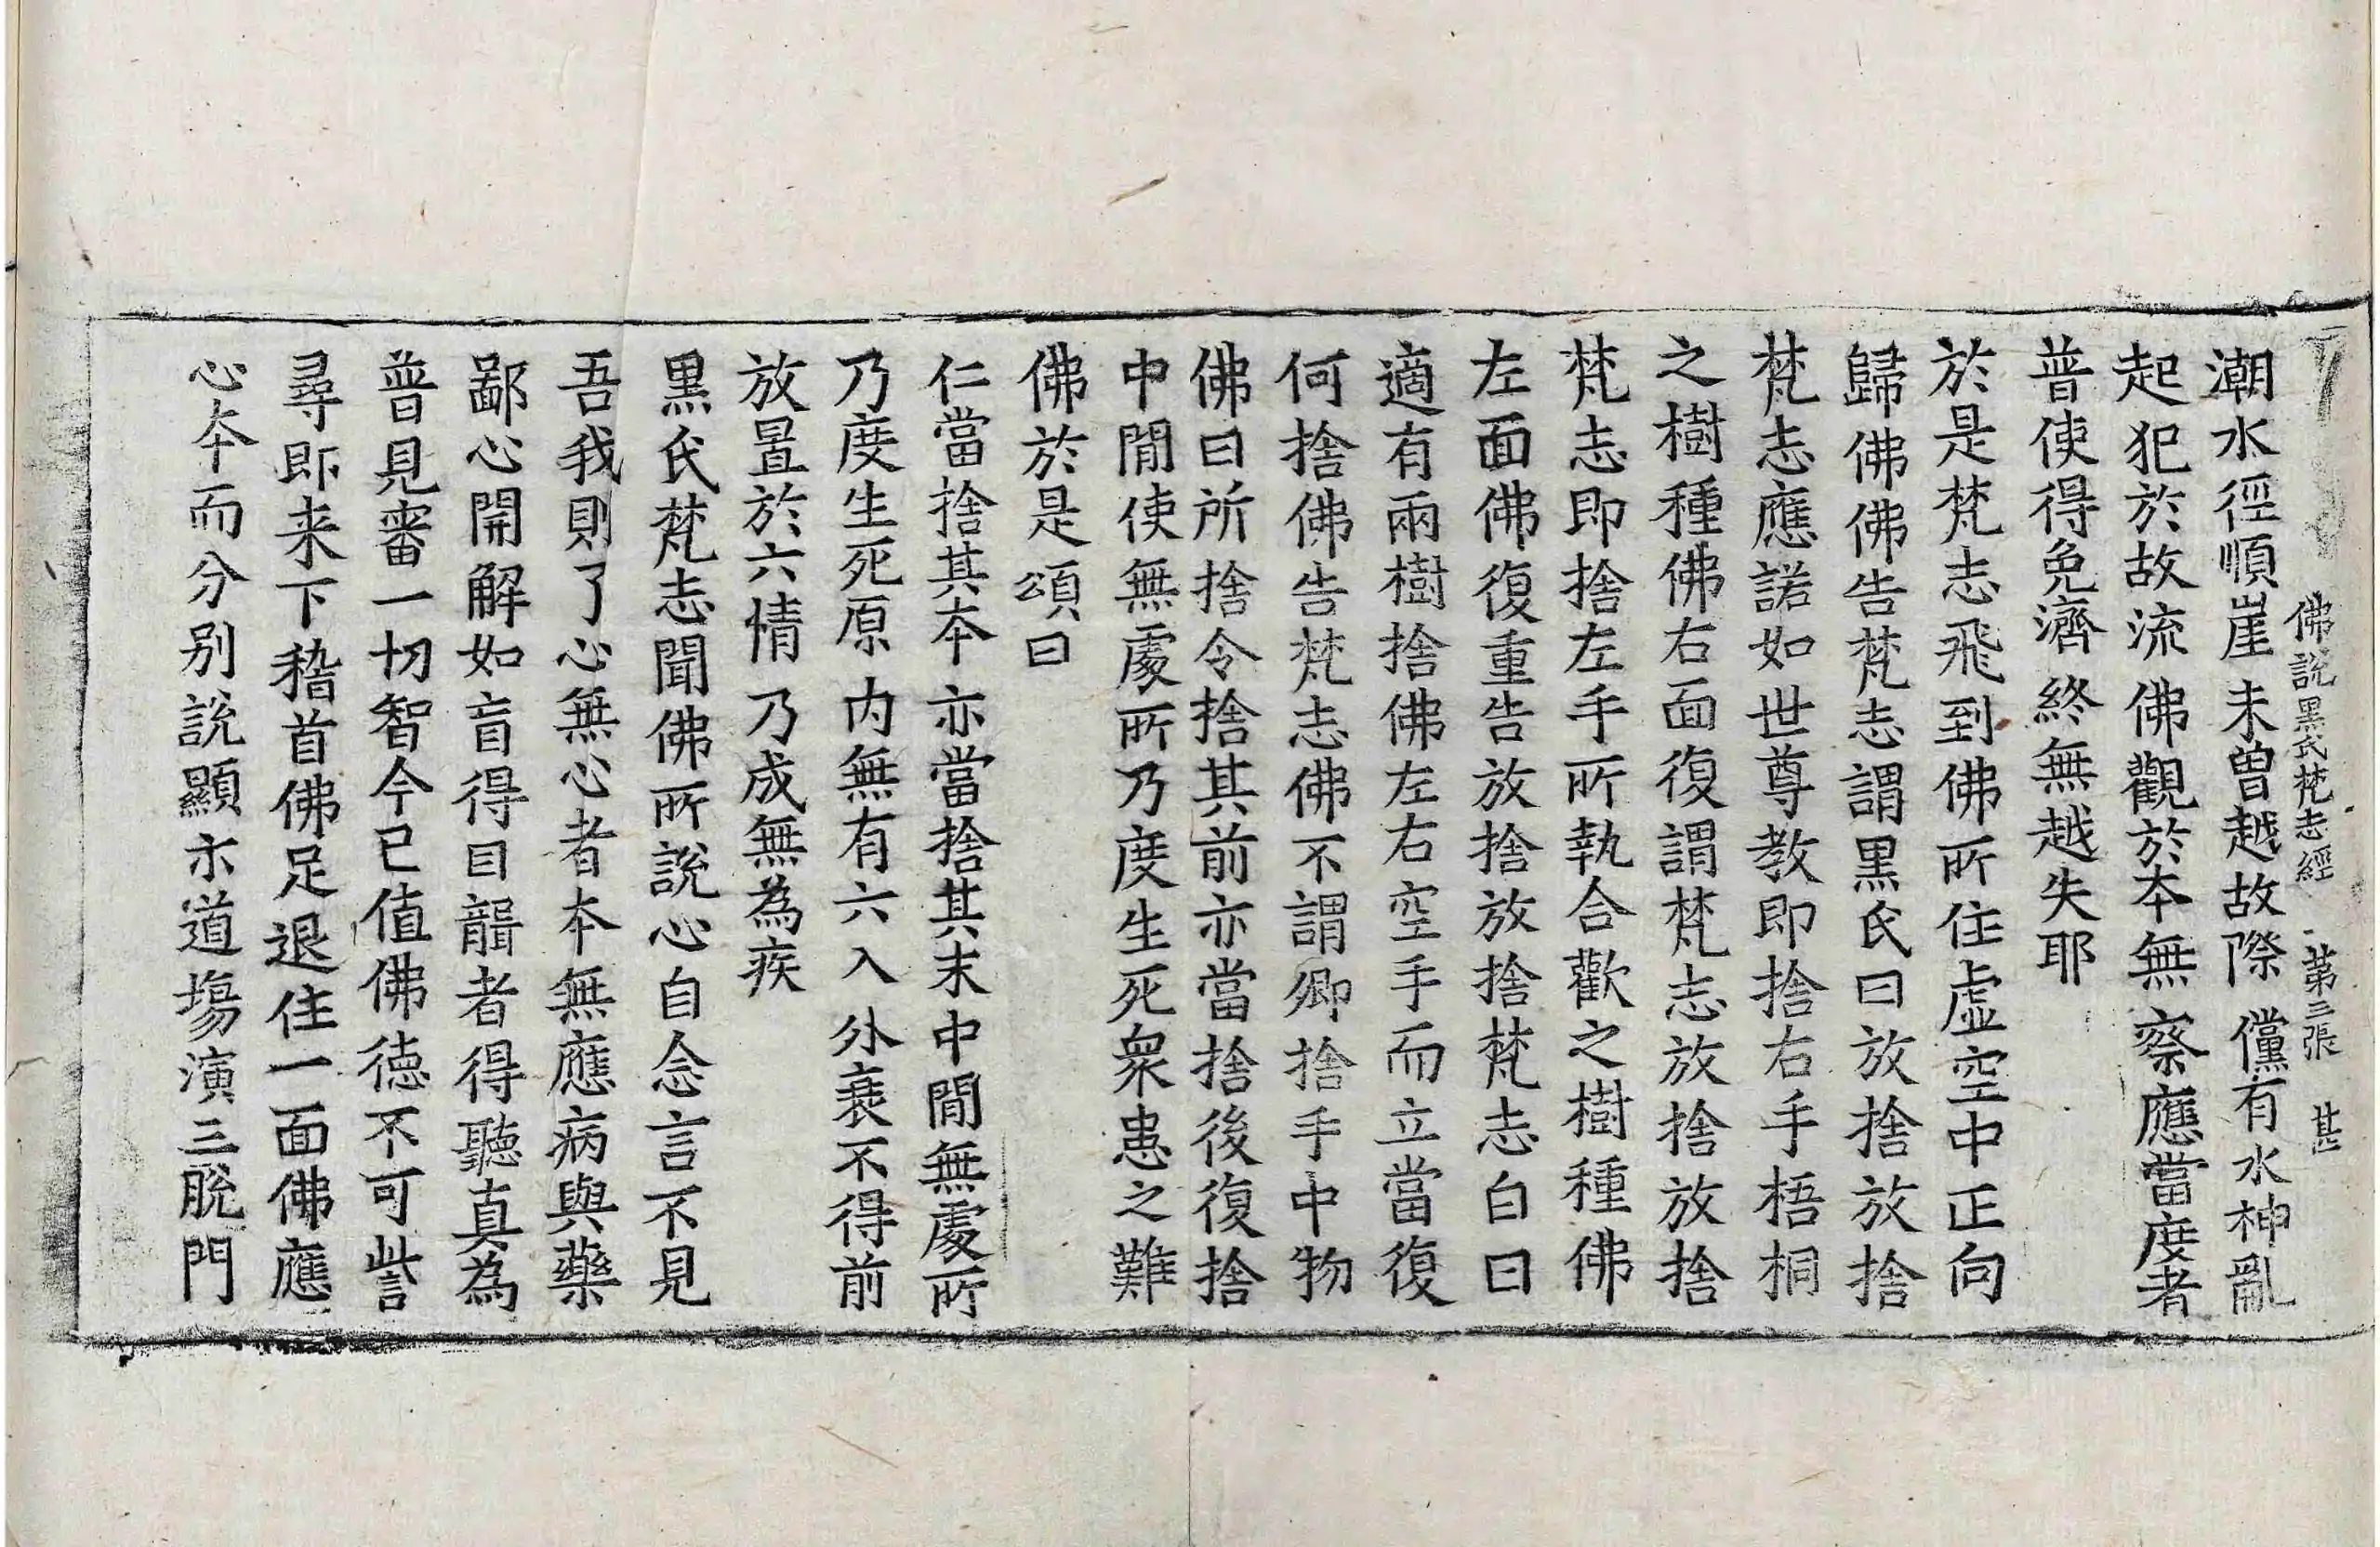 佛說黑氏梵志經 第三張 甚
潮水徑順崖 未曾越故際 儻有水神亂
起犯於故流 佛觀於本無 察應當度者
普使得免濟 終無越失耶
於是梵志飛到佛所住虛空中正向
歸佛佛告梵志謂黑氏曰放捨放捨
梵志應諾如世尊教即捨右手梧桐
之樹種佛右面復謂梵志放捨放捨
梵志即捨左手所執合歡之樹種佛
左面佛復重告放捨放捨梵志白曰
適有兩樹捨佛左右空手而立當復
何捨佛告梵志佛不謂卿捨手中物
佛曰所捨令捨其前亦當捨後復捨
中閒使無處所乃度生死衆患之難
佛於是頌曰
仁當捨其本 亦當捨其末 中閒無處所
乃度生死原 内無有六入 外衰不得前
放置於六情 乃成無為疾
黑氏梵志聞佛所說心自念言不見
吾我則了心無心者本無應病與藥
鄙心開解如盲得目聾者得聽真為
普見審一切智今已值佛德不可訾
尋即来下稽首佛足退住一面佛應
心本而分别說顯示道場演三脫門